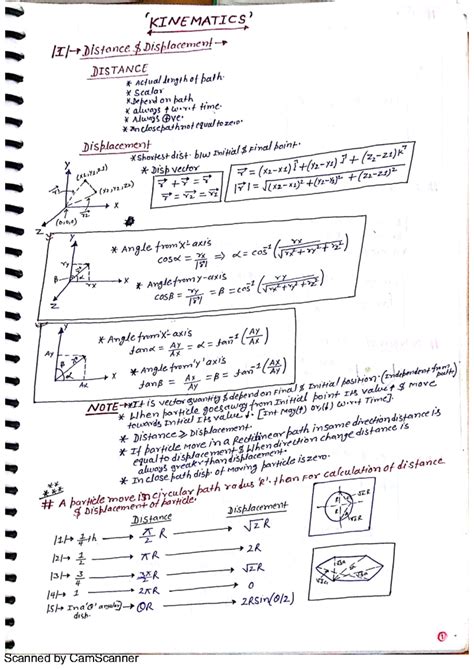 'KINEMATICS'
|I|→ Distance & Displacement →
DISTANCE
* Actual length of path.
* Scalar
* Depend on path
* always ↑ w.r.t time.
* Always ⊕ve.
* In close path not equal to zero.
Displacement
* Shortest dist. b/w Initial & Final point.
* Disp vector
r⃗ = (x2-x1) î + (y2-y1) ĵ + (z2-z1) k̂
(0,0,0)
* Angle from 'X'-axis
cosα = rx/|r⃗| ⇒ α = cos⁻¹ (rx/√(rx²+ry²+rz²))
* Angle from y-axis
cosβ = ry/|r⃗| = β = cos⁻¹ (ry/√(rx²+ry²+rz²))
* Angle from 'X'-axis
tanα = Ay/Ax = α = tan⁻¹ (Ay/Ax)
* Angle from 'y' axis
tanβ = Ax/Ay = β = tan⁻¹ (Ax/Ay)
NOTE→* It is vector quantity & depend on Final & Initial position. (Independent from path)
* When particle goes away from Initial point Its value ↑ & move
towards Initial Its value ↓. [Int May(↑) or (↓) w.r.t Time].
* Distance ≥ Displacement.
* If particle move in a Rectlinear path in same direction distance is
equal to displacement & When direction change distance is
always greater than displacement.
* In close path disp. of Moving particle is zero.
***
# A particle move in circular path radus 'R'. than For calculation of distance
& Displacement of particle.
Distance Displacement
|1|→ 1/4 th → π/2 R → √2R
|2|→ 1/2 → πR → 2R
|3|→ 3/4 → 3π/2 R → √2R
|4|→ 1 → 2πR → 0
|5|→ In a 'θ' angular disp. → θR → 2R sin(θ/2)
Scanned by CamScanner